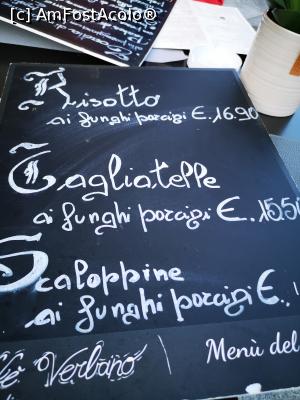 [c] AmFostAcolo®
Risotto
ai funghi porcini €. 16.90
Tagliatelle
ai funghi porcini €. 15.50
Scaloppine
ai funghi porcini €.
Verbano
Menù del